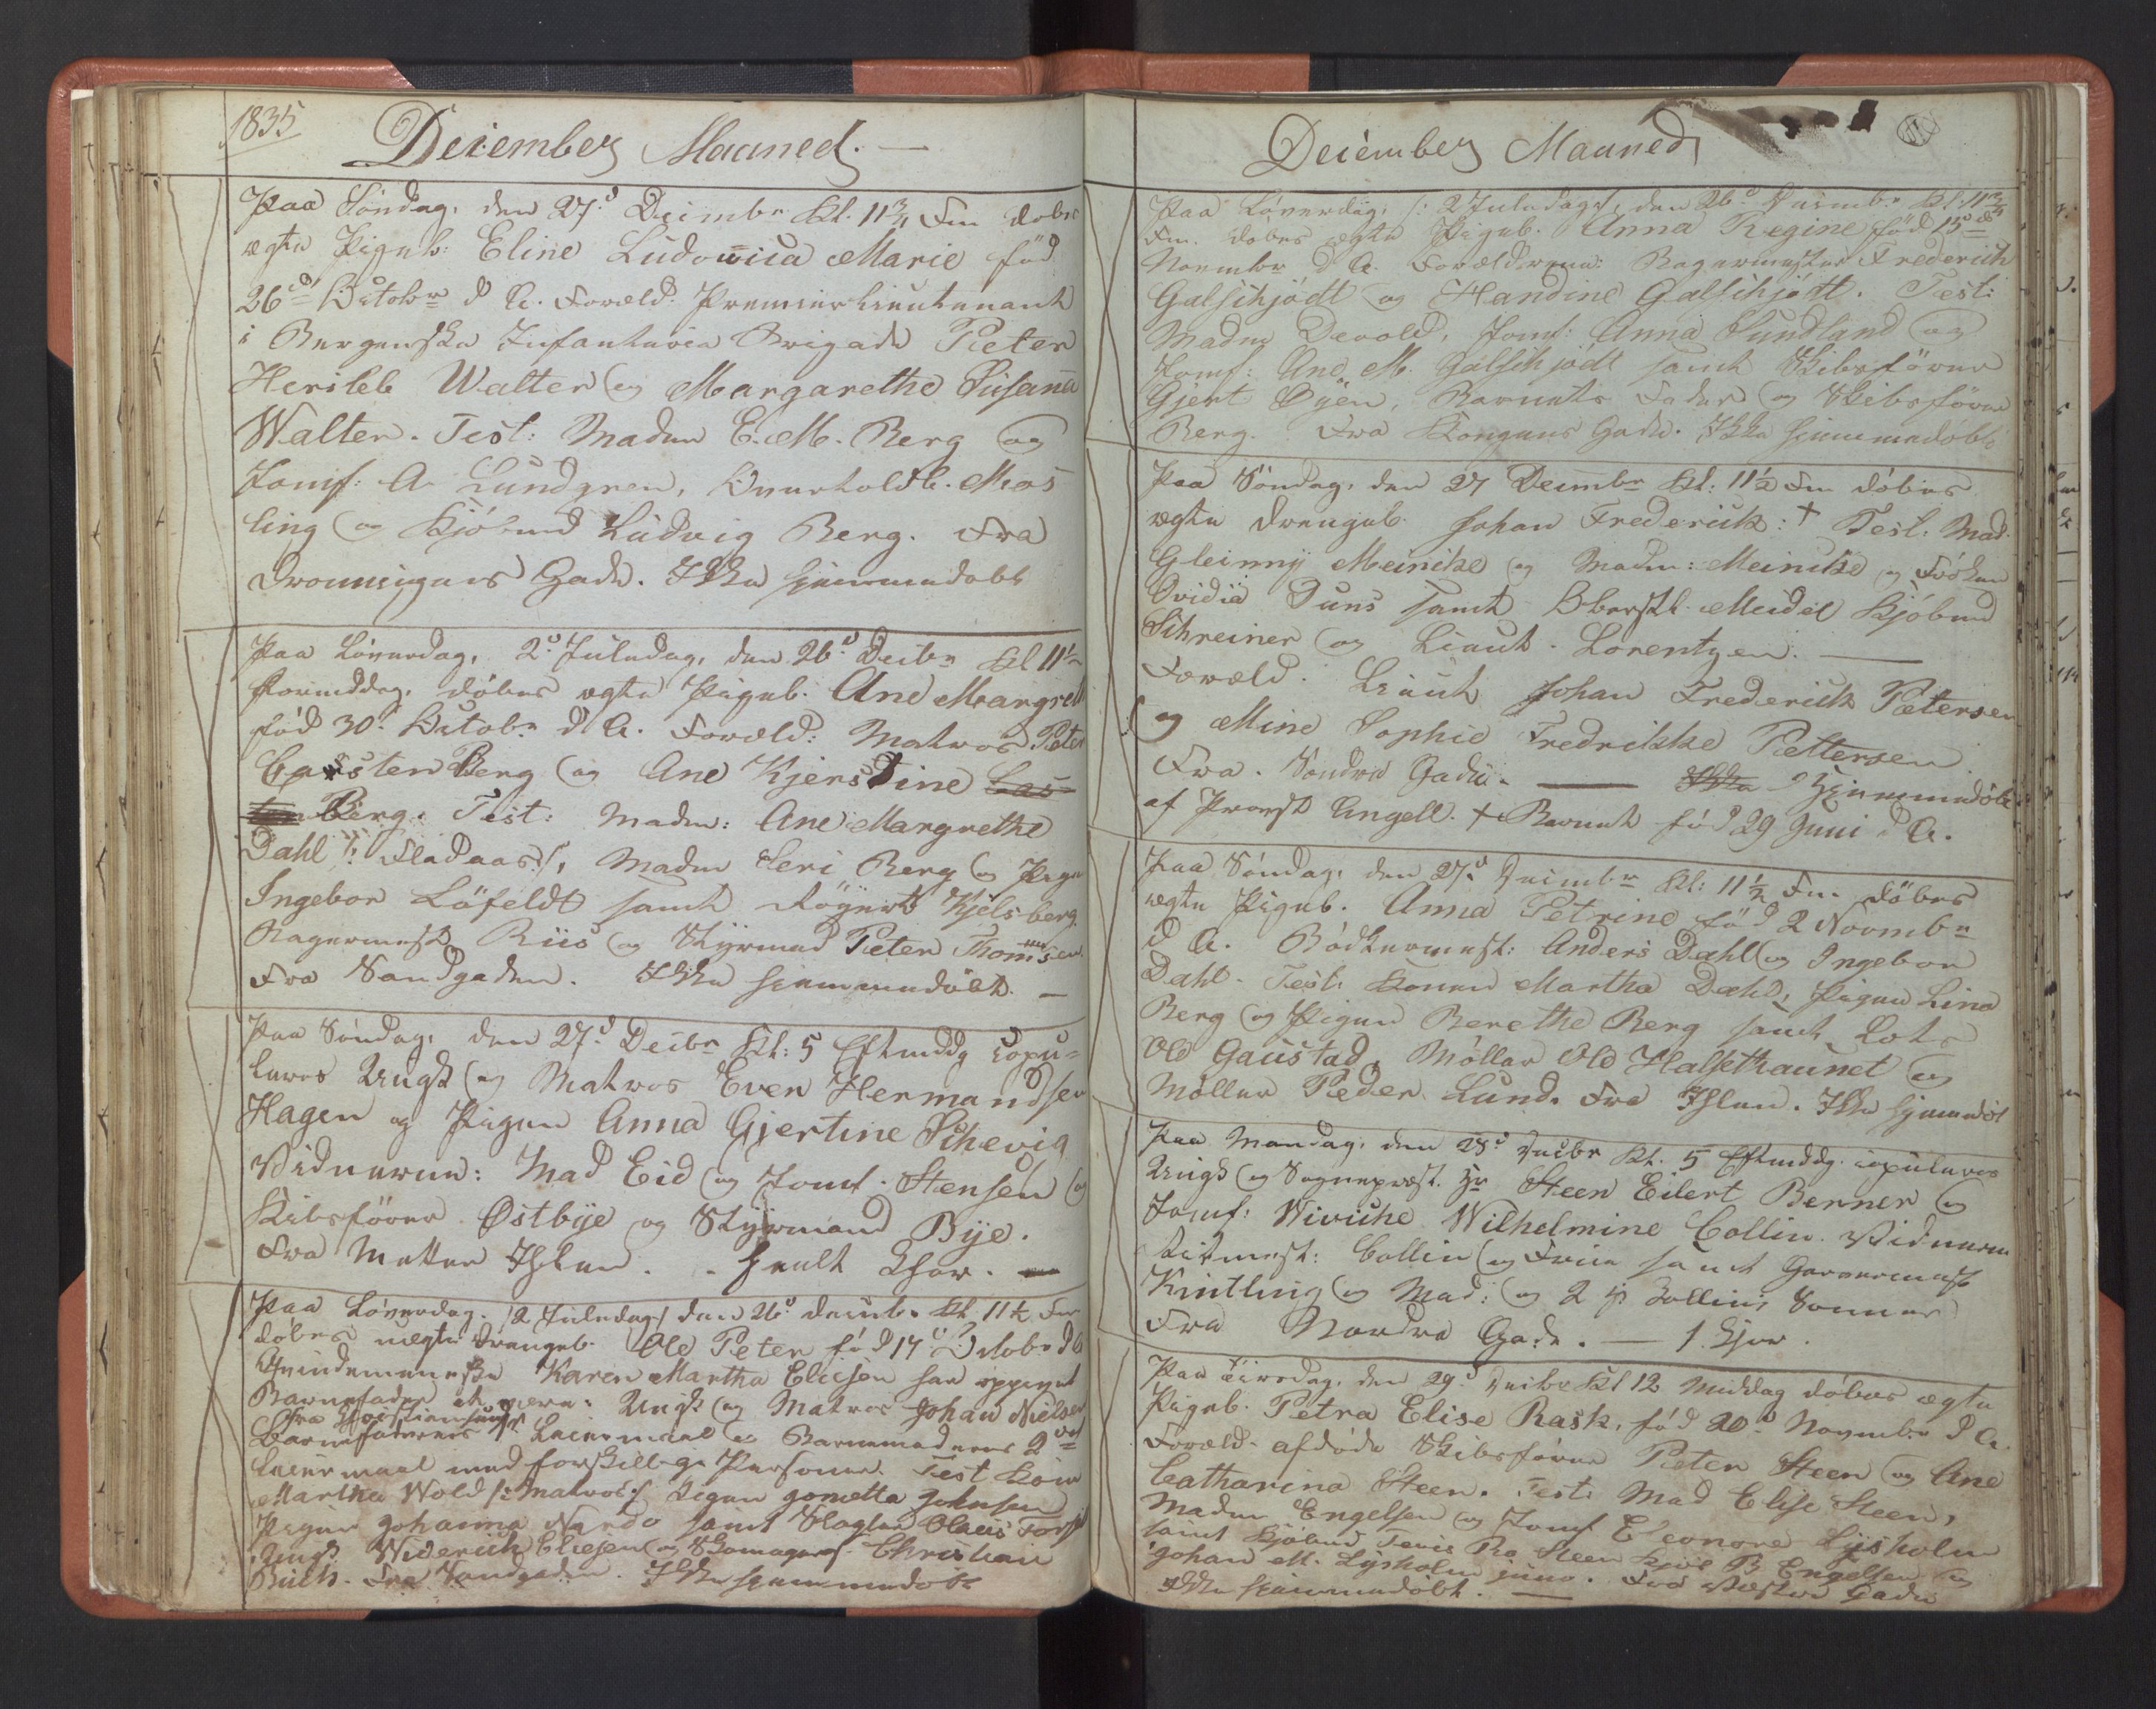 1835
December Maaned. —
Paa Søndag, den 27d Decimbr Kl. 11 3/4 Fm døbes
ægte Pigeb: Eline Ludowica Marie fød
26d Octobr d A. Foræld: Premier Lieutenant
i Bergenske Infanterie Brigade Peter
Hersleb Walter og Margarethe Susana
Walter. Test: Madm E. M. Berg og
Jomf: A Lundgren, Overholdb. Mos
ling og Kjöbmd Ludvig Berg. Fra
Dronnigens Gade. Ikke hjemmedøbt
Paa Løverdag, 2d Juledag, den 26d Decbr Kl 11 1/2
Formiddag, døbes ægte Pigeb. Ane Margreth
fød 30d Octobr d A. Foræld: Matros Peter
Casten Berg og Ane Kjerstine Cas
ten Berg. Test: Madm: Ane Margrethe
Dahl /: Fladaas :/, Madm Seri Berg og Pige
Ingebor Löfeldt samt Røgert Kjelsberg
Bagermest Riis og Styrmand Peter Thomsen
Fra Sandgaden. Ikke hjemmedøbt. —
Paa Søndag, den 27d Decbr Kl: 5 Eftmddg copu=
leres Ungk og Matros Even Hermandsen
Hagen og Pigen Anna Gjertine Schevig
Vidnerne: Mad Eid og Jomf. Stensen og
Skibsfører Østbye og Styrmand Bye.
Fra Mellem Ihlen. - heelt Chor. —
Paa Løverdag. /2 Juledag/ den 26d Decimb. Kl. 11 1/2 Fm
døbes uægte Drengeb. Ole Peter fød 17d Octobr d A
Qvindemenneske Karen Martha Eliesen har opgivet
Barnefader at være: Ungk og Matros Johan Nielsen
fra Christiansund
Barnefaderens 1ste Leiermaal og Barnemoderens 2det
Leiermaal med forskillige Personer. Test Kone
Martha Wold /: Matros :/ Pigen Jonetta Johnsen
Pigen Johanna Nardo samt Slagter Olaus
Ungk Niderich Eliesen og Skomagers. Christian
Buch. Fra Sandgaden. Ikke hjemmedøbt
December Maaned
Paa Løverdag, /: 2 Juledag :/, den 26d Decimbr Kl. 11 3/4
Fm. døbes ægte Pigeb. Anna Regine fød 15d
Novembr d A. Forældrene: Bagermester Frederich
Galschjødt og Handine Galschjødt. Test:
Madm Devold, Jomf: Anna Sundland og
Jomf: Ane M. Galschjødt samt Skibsfører
Gjert Øyen, Barnets Fader og Skibsfører
Berg. Fra Kongens Gade. Ikke hjemmedøbt
Paa Søndag, den 27 Decimbr Kl: 11 1/2 Fm døbes
ægte Drengeb. Johan Frederick: † Test. Mad.
Gleinny Meincke og Madm: Meincke og Frøken
Ovidia Duns samt Oberstl. Meidel Kjöbmd
Schreiner og Lieut. Lorentzen. —
Foræld. Lieut Johan Frederick Petersen
og Mine Sophie Fredrikke Pettersen
Fra. Søndre Gade. — Ikke Hjemmedøbt
af Provst Angell. † Barnet fød 29 Juni d A.
Paa Søndag, den 27d Decimbr Kl: 11 1/2 Fm døbes
ægte Pigeb. Anna Petrine fød 2 Novembr
d A. Bødkermest: Anders Dahl og Ingebor
Dahl. Test: Konen Martha Dahl, Pigen Lina
Berg og Pigen Berethe Berg samt Lods
Ole Gaustad, Møller Ole Halsethaunet og
Møller Peder Lund. Fra Ihlen. Ikke hjemmedøbt
Paa Mandag, den 28d Decbr Kl. 5 Eftmddg. copuleres
Ungk og Sogneprest. Hr Steen Eilert Berner og
Jomf: Wiviche Wilhelmine Collin. Vidnerne
Ritmest: Collin og Frue samt Garvermest
Kintling og Mad: og 2 Collins Sønner
Fra Nordre Gade. — 1. Chor.
Paa Tirsdag, den 29d Decbr Kl 12 Middag døbes ægte
Pigeb. Petra Elise Rask, fød 20d Novembr d A.
Foræld. afdøde Skibsfører Peter Steen og Ane
Catharina Steen. Test: Mad Elise Steen,
Madm Engelsen og Jomf Eleonore Lysholm
samt Kjöbmd Tenis Ro Steen B Engelsen og
Johan M. Lysholm junr. Fra Vestre Gade
Ikke hjemmedøbt. —